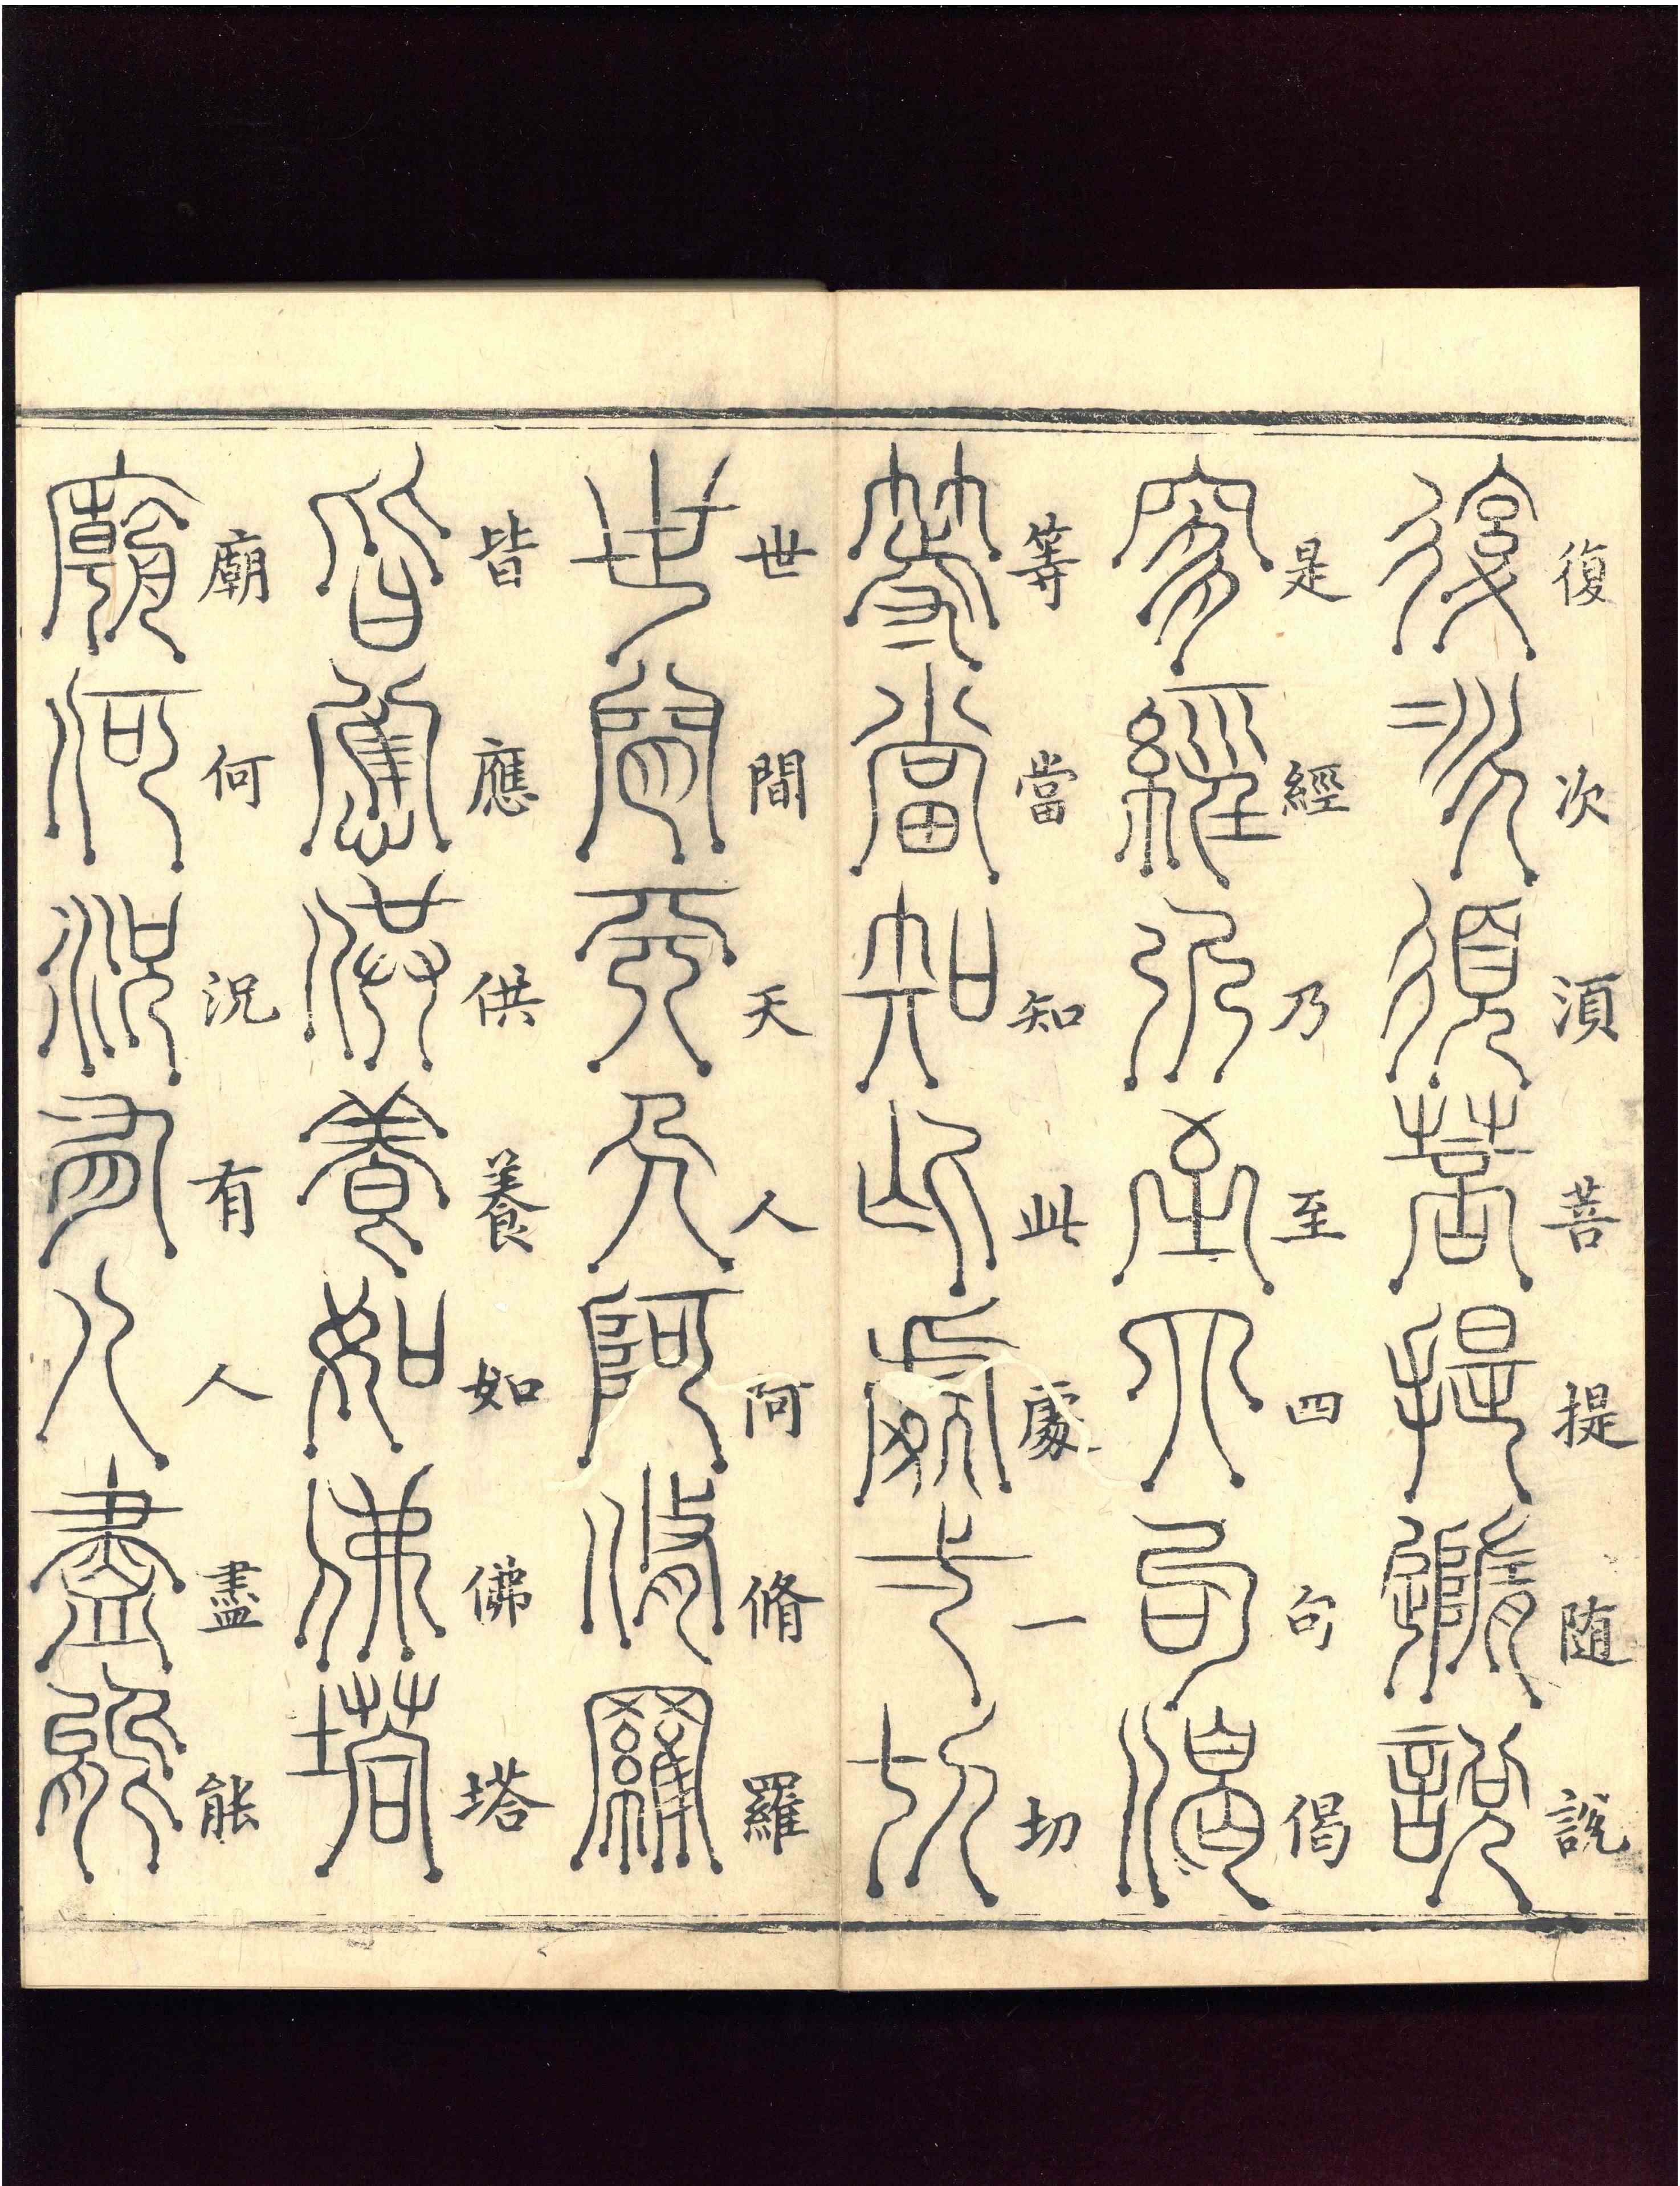 復次湏菩提随說
是經乃至四句偈
等當知此處一切
世間天人阿脩羅
皆應供養如佛塔
廟何況有人盡能